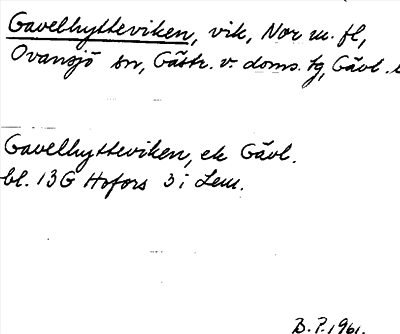 Gavelhytteviken, vik, Nor m. fl,
Ovansjö sn, Gästr. v. doms. tg, Gävl.
Gavelhytteviken, ek Gävl.
bl. 13G Hofors 3 i Lem.
B.P. 1961.